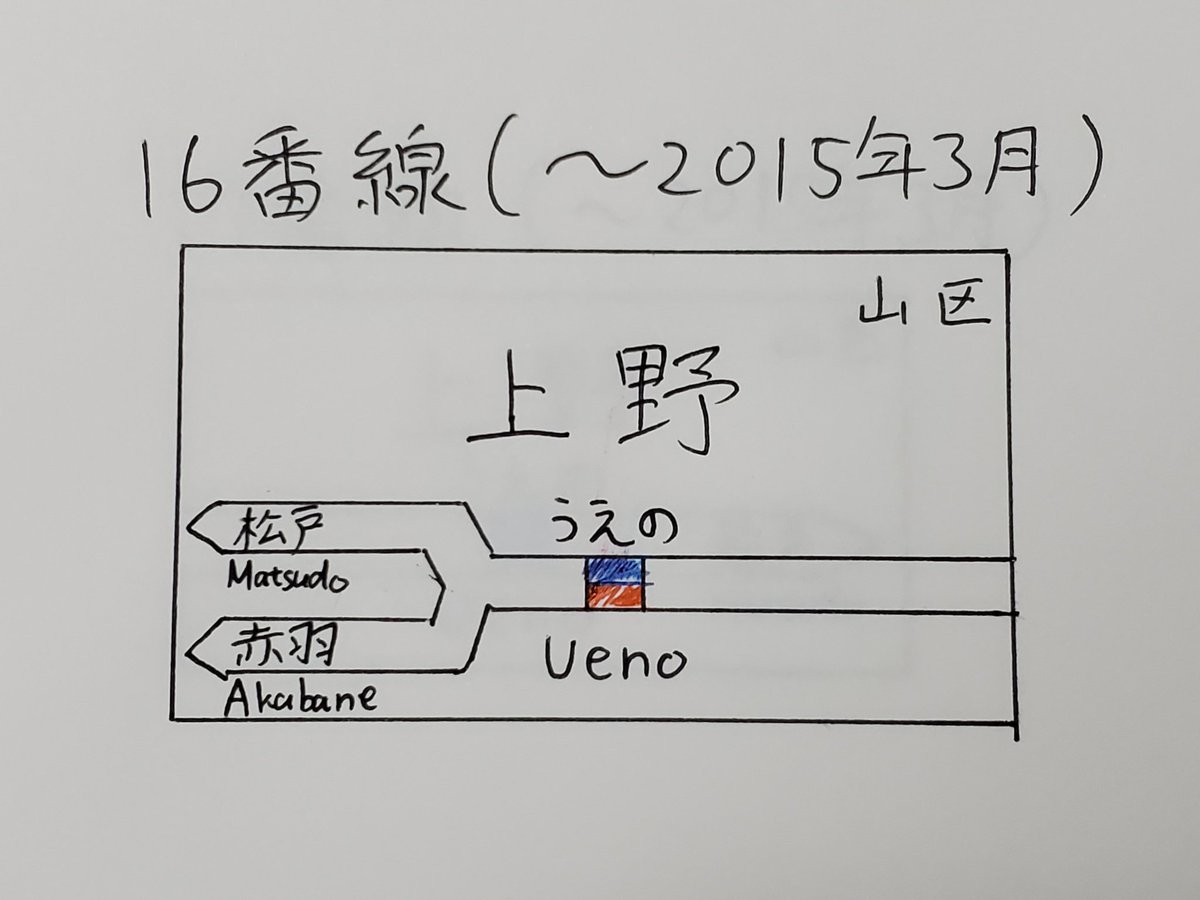 16番線(～2015年3月)
山区
上野
うえの
松戸
Matsudo
赤羽
Akabane
Ueno